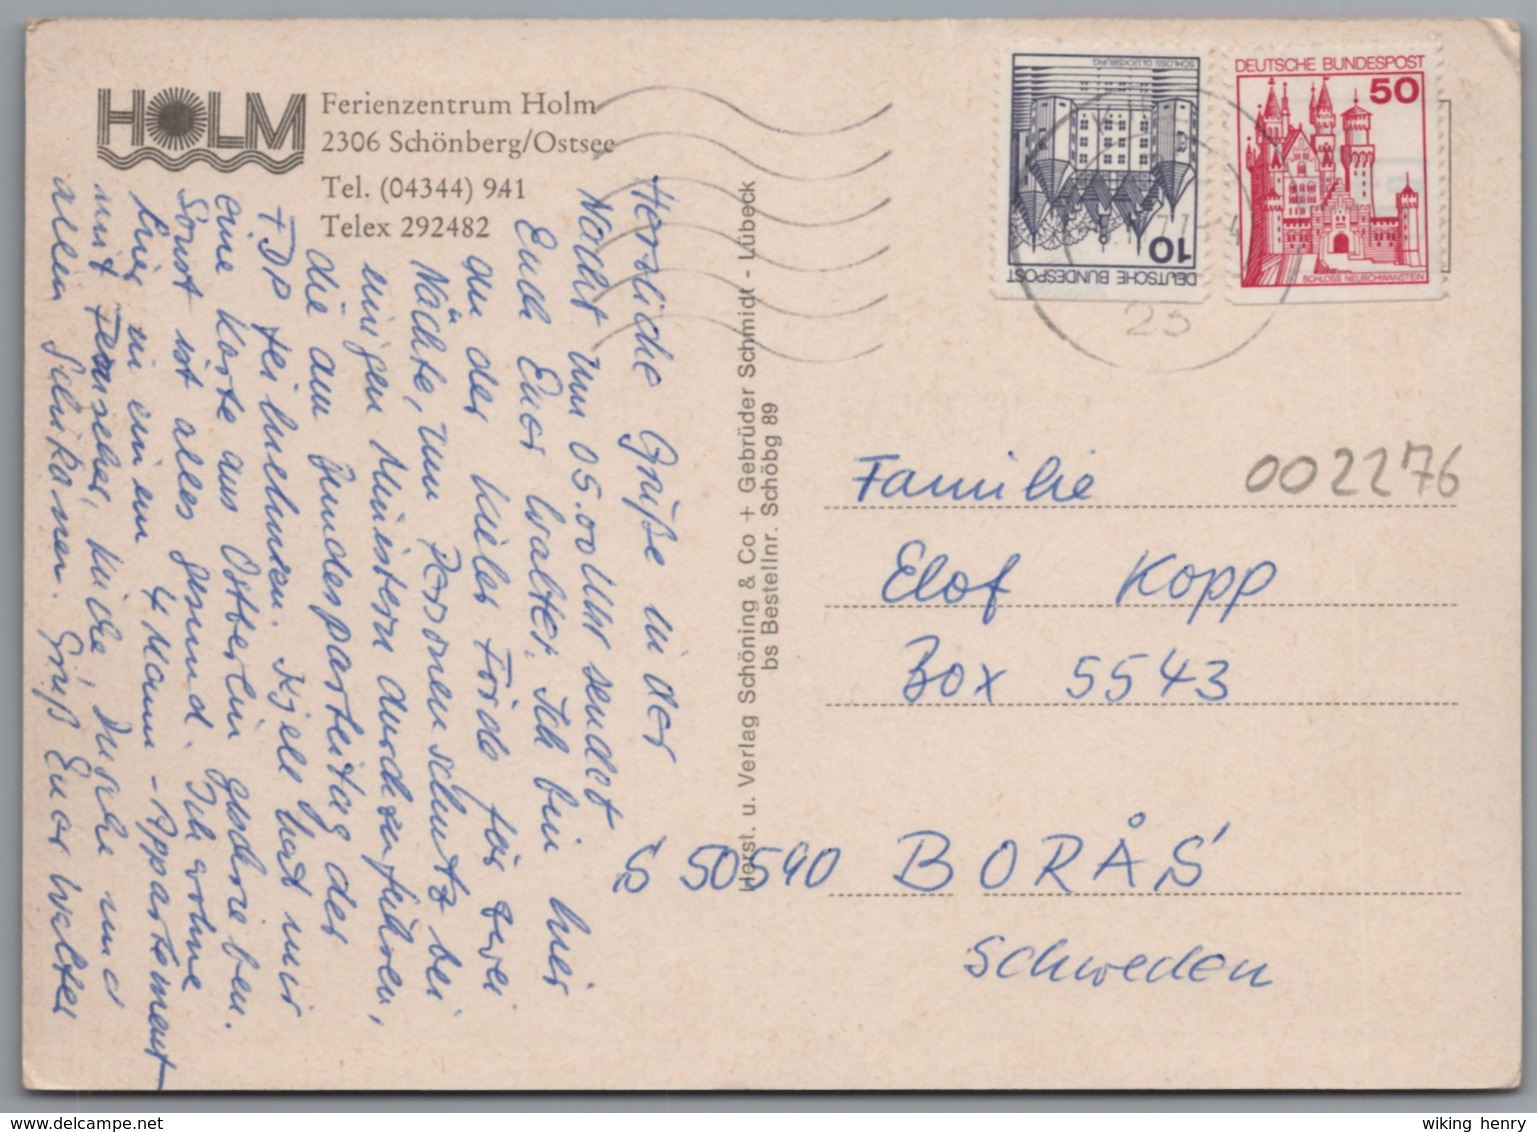 HOLM
Ferienzentrum Holm
2306 Schönberg/Ostsee
Tel. (04344) 941
Telex 292482
Herzliche Grüße in der
Nacht um 05.00 Uhr sendet
Euch Euer Walter. Ich bin hier
an der Kieler Förde für zwei
Nächte, um Personenschutz bei
einigen Ministern durchzuführen,
die am Bundesparteitag der
FDP teilnehmen. Kjell hat mir
eine Karte aus Ostberlin geschrieben.
Sonst ist alles gesund. Ich wohne
hier in einem 4 Mann-Appartement
mit Fernseher, Küche, Dusche und
allen Schikanen. Gruß Euer Walter
Horst. u. Verlag Schöning & Co + Gebrüder Schmidt - Lübeck
bs Bestellnr. Schöbg 89
DEUTSCHE BUNDESPOST
10
SCHLOSS GLÜCKSBURG
DEUTSCHE BUNDESPOST
50
SCHLOSS NEUSCHWANSTEIN
23
002276
Familie
Elof Kopp
Box 5543
S 50590 BORÅS
Schweden
delcampe.net
wiking henry